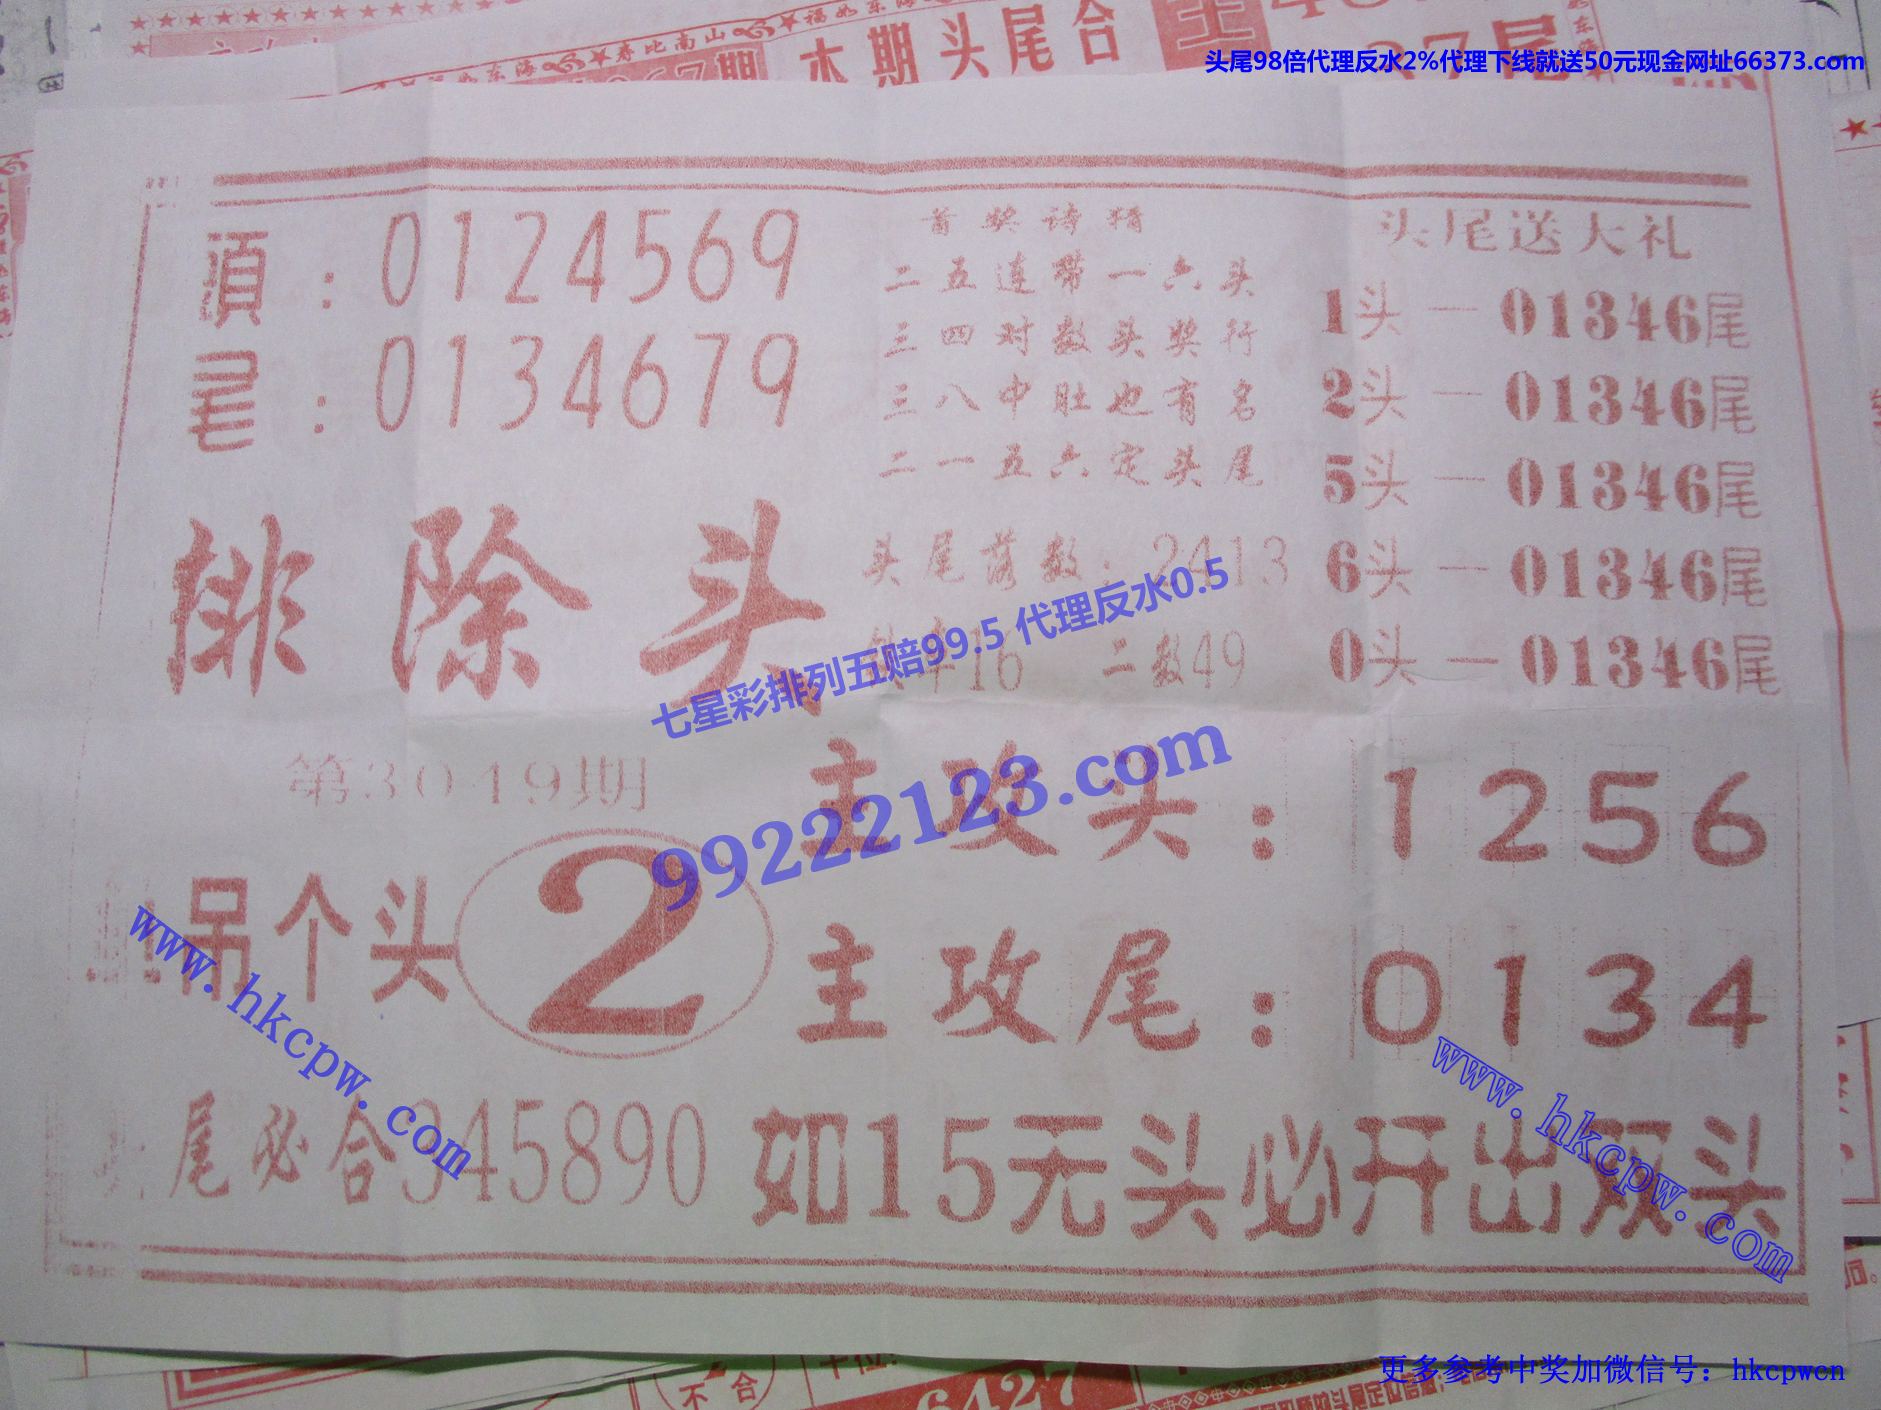 福如东海 寿比南山 福如东海
本期头尾合
头尾98倍代理反水2%代理下线就送50元现金网址66373.com
頭：0124569
尾：0134679
首奖诗猜
二五连带一六头
三四对数头奖行
三八中肚也有名
二一五六定头尾
头尾落数：2413
16 二数49
头尾送大礼
1头—01346尾
2头—01346尾
5头—01346尾
6头—01346尾
0头—01346尾
排除头
七星彩排列五赔99.5 代理反水0.5
99222123.com
第3049期
吊个头2
主攻头：1256
主攻尾：0134
www.hkcpw.com
www.hkcpw.com
尾必合345890
如15无头必开出双头
不合
6427
更多参考中奖加微信号：hkcpwcn